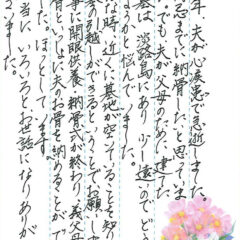 年、夫が心疾患で急逝しました。
忌までに納骨したと思ってま
でも、夫が父母のために建てた
墓は淡路島にあり、少し遠いのでどう
うかと悩んでいました。
な時、近くに墓地が空いてることを知り
墓の引越ができるということでお願いし
事に開眼供養、納骨式が終わり、義父母
骨といっしょに夫のお骨を納めることがで
として
当に、いろいろとお世話になりありが
いました。